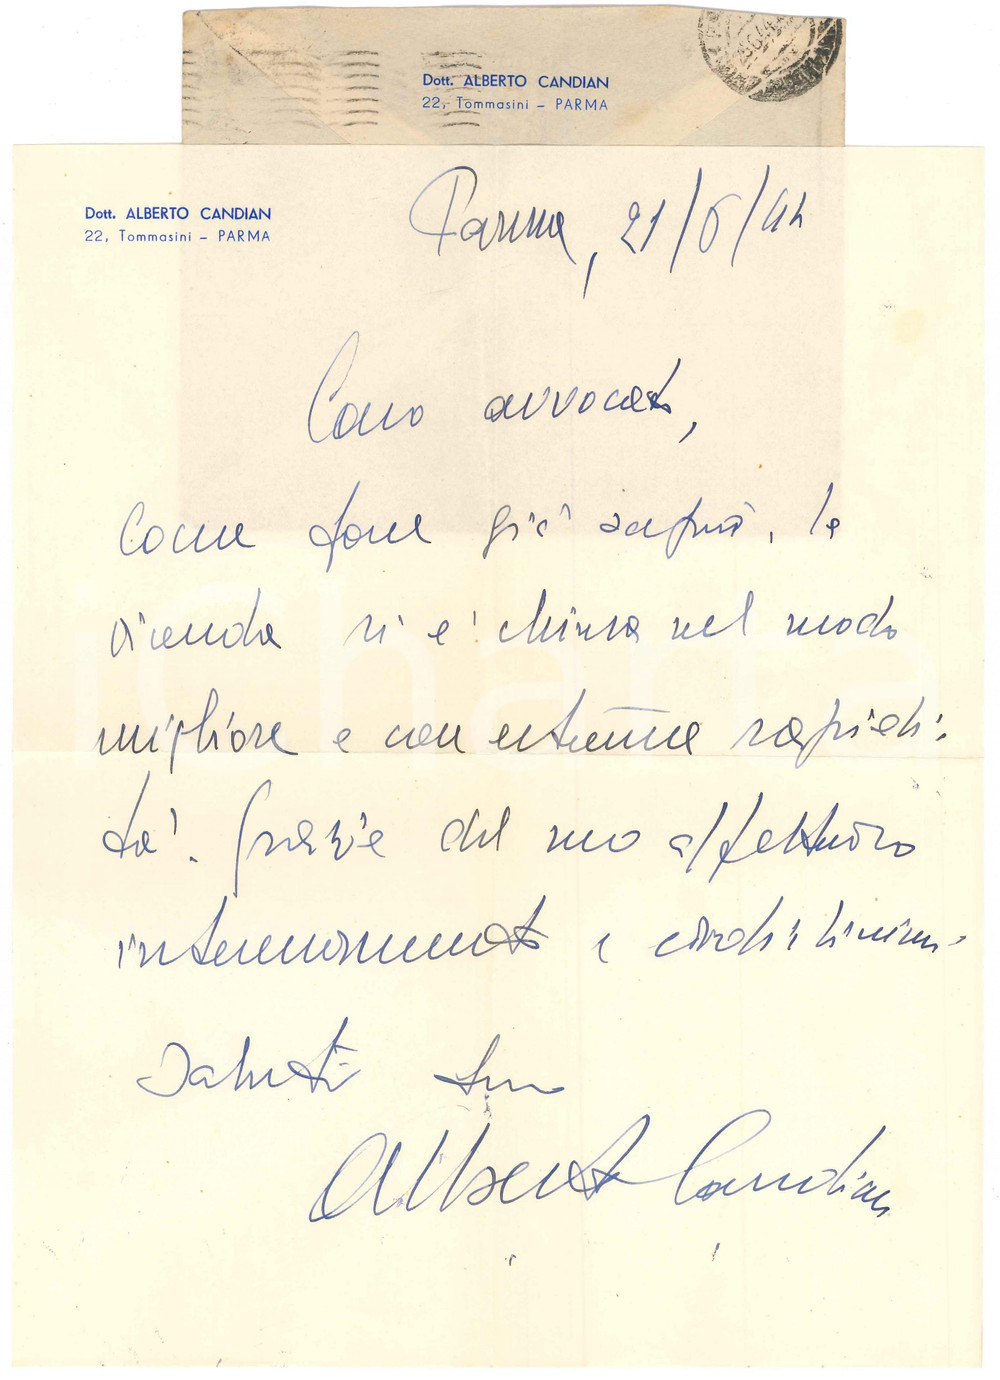 Dott. ALBERTO CANDIAN
22, Tommasini – PARMA
Dott. ALBERTO CANDIAN
22, Tommasini – PARMA
Parma, 21/6/44
Caro avvocato,
Come forse già saprà, la
vicenda si è chiusa nel modo
migliore e con estrema rapidi-
tà. Grazie del suo affettuoso
interessamento e cordialissimi
Saluti suo
Alberto Candian